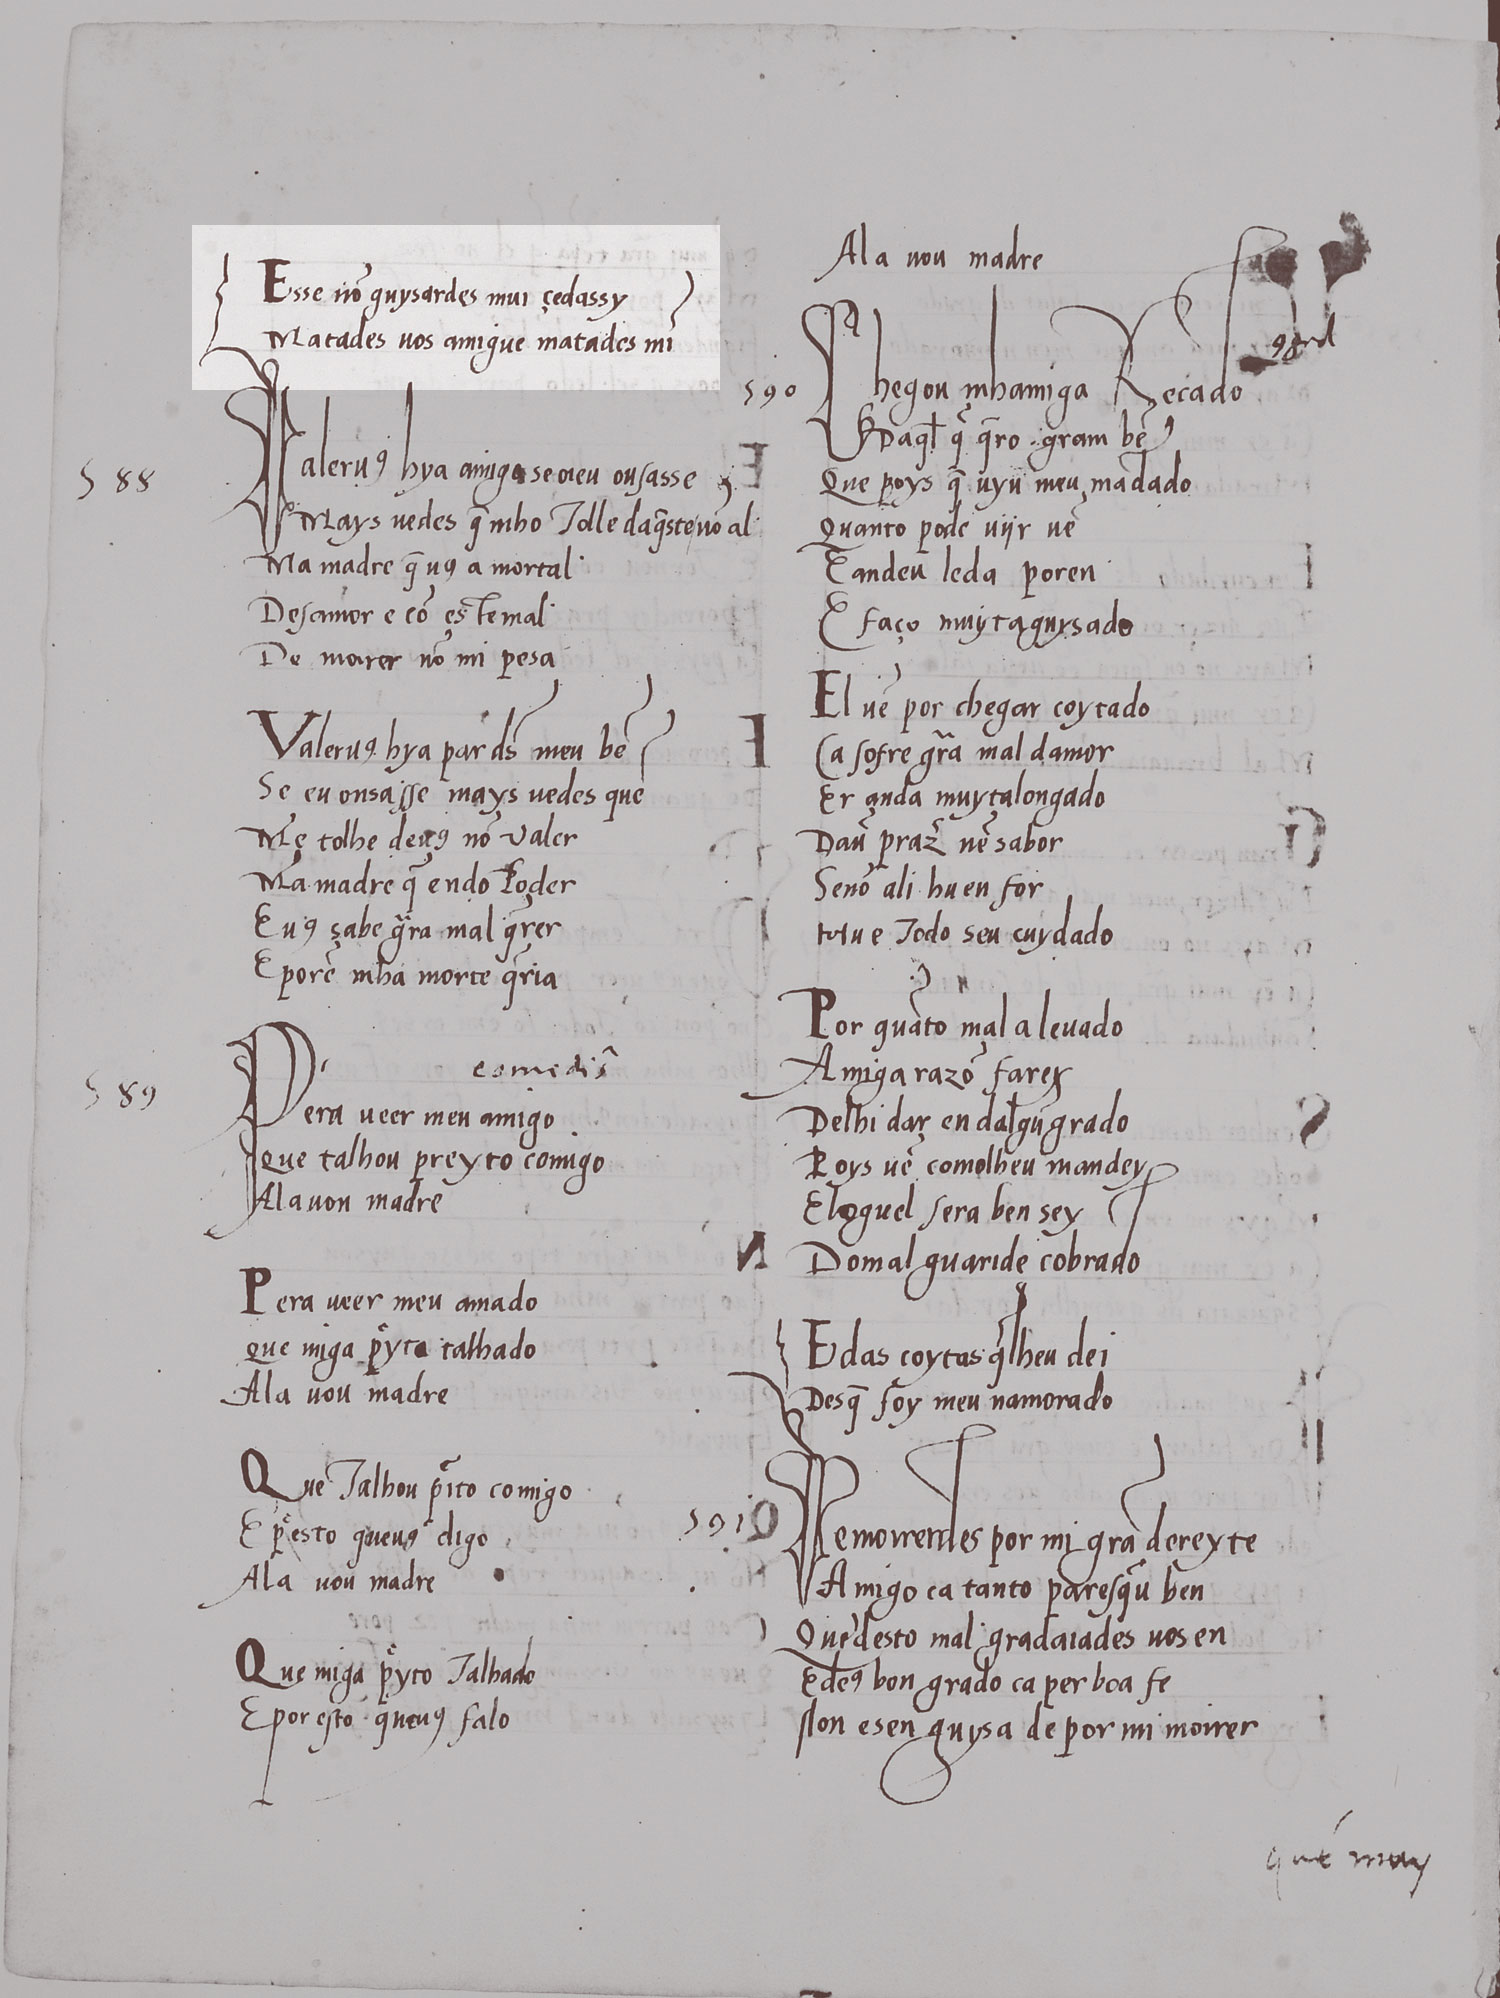 Esse nõ guysardes mui çedassy
Matades uos amigue matades mĩ
588
Valerꝰ hya amiga se meu ousasse
Mays uedes q̃ mho Tolle daq̃ste nõ al
Ma madre q̃ uꝯ a mortal
Desamor e cõ este mal
De morrer nõ mi pesa
Valeruꝯ hya par ds̃ meu bẽ
Se eu ousasse mays uedes que
Me tolhe deuꝯ nõ ualer
Ma madre q̃ endo Poder
E uꝯ sabe g̃ra mal q̃rer
E porẽ mha morte q̃ria
589
Pera ueer meu amigo
que talhou preyto comigo
Ala uou madre
Pera ueer meu amado
que miga p̃yto talhado
Ala uou madre
Que Talhou p̃ito comigo
E p̃esto queuꝯ digo
Ala uou madre
Que miga p̃yto Talhado
E por esto q̃ueuꝯ falo
Ala uou madre
590
Chegou mhamiga Recado
Daq̃l q̃ q̃ro gram bẽ
Que poys q̃ uyu meu mãdado
Quanto pode uijr uẽ
E andeu leda poren
E faço muytaguysado
El uẽ por chegar coytado
Ca sofre grã mal damor
Er anda muytalongado
Dauer praz̃ nẽ sabor
Senõ ali hu en for
Todo seu cuydado
Por quãto mal a leuado
Amiga razõ farey
Delhi dar en dalgũ grado
Poys uẽ comolheu mandey
E loguel sera ben sey
Do mal guaride cobrado
E das coytas q̃ lheu dei
Desq̃ foy meu namorado
591
De morrerdes por mi grã dereyte
Amigo ca tanto paresq̃u ben
Que desto mal gradaiades uos en
E deꝯ bon grado ca per boa fe
Non e sen guysa de por mi moirer
que may